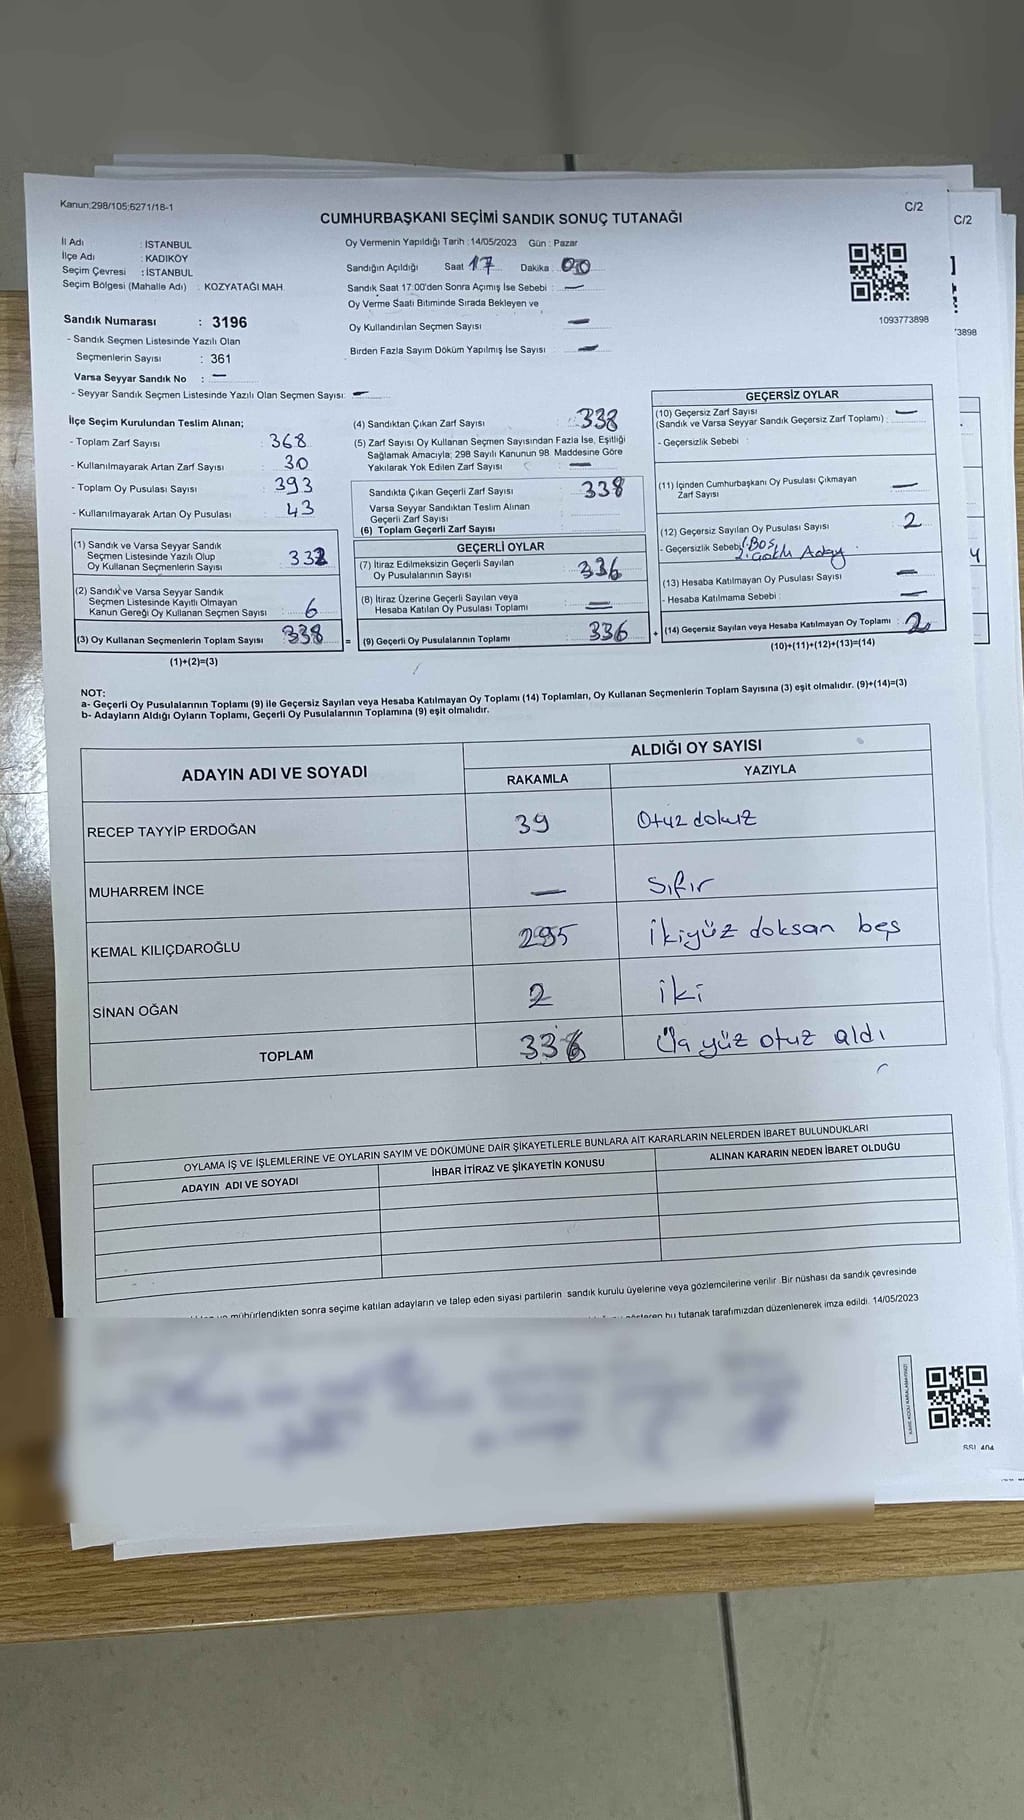 Kanun;298/105;6271/18-1
C/2
C/2
CUMHURBAŞKANI SEÇİMİ SANDIK SONUÇ TUTANAĞI
İl Adı : İSTANBUL
İlçe Adı : KADIKÖY
Seçim Çevresi : İSTANBUL
Seçim Bölgesi (Mahalle Adı) : KOZYATAĞI MAH.
Oy Vermenin Yapıldığı Tarih : 14/05/2023 Gün : Pazar
Sandığın Açıldığı Saat 17 Dakika : 00
Sandık Saat 17:00'den Sonra Açımış İse Sebebi : —
Oy Verme Saati Bitiminde Sırada Bekleyen ve
Oy Kullandırılan Seçmen Sayısı —
Birden Fazla Sayım Döküm Yapılmış İse Sayısı —
1093773898
3898
Sandık Numarası : 3196
- Sandık Seçmen Listesinde Yazılı Olan
Seçmenlerin Sayısı : 361
Varsa Seyyar Sandık No : —
- Seyyar Sandık Seçmen Listesinde Yazılı Olan Seçmen Sayısı: —
İlçe Seçim Kurulundan Teslim Alınan;
- Toplam Zarf Sayısı : 368
- Kullanılmayarak Artan Zarf Sayısı : 30
- Toplam Oy Pusulası Sayısı : 393
- Kullanılmayarak Artan Oy Pusulası : 43
(1) Sandık ve Varsa Seyyar Sandık
Seçmen Listesinde Yazılı Olup
Oy Kullanan Seçmenlerin Sayısı : 332
(2) Sandık ve Varsa Seyyar Sandık
Seçmen Listesinde Kayıtlı Olmayan
Kanun Gereği Oy Kullanan Seçmen Sayısı : 6
(3) Oy Kullanan Seçmenlerin Toplam Sayısı : 338 =
(1)+(2)=(3)
(4) Sandıktan Çıkan Zarf Sayısı : 338
(5) Zarf Sayısı Oy Kullanan Seçmen Sayısından Fazla İse, Eşitliği
Sağlamak Amacıyla; 298 Sayılı Kanunun 98. Maddesine Göre
Yakılarak Yok Edilen Zarf Sayısı —
Sandıkta Çıkan Geçerli Zarf Sayısı : 338
Varsa Seyyar Sandıktan Teslim Alınan
Geçerli Zarf Sayısı
(6) Toplam Geçerli Zarf Sayısı
GEÇERLİ OYLAR
(7) İtiraz Edilmeksizin Geçerli Sayılan
Oy Pusulalarının Sayısı : 336
(8) İtiraz Üzerine Geçerli Sayılan veya
Hesaba Katılan Oy Pusulası Toplamı : —
(9) Geçerli Oy Pusulalarının Toplamı : 336 +
GEÇERSİZ OYLAR
(10) Geçersiz Zarf Sayısı
(Sandık ve Varsa Seyyar Sandık Geçersiz Zarf Toplamı) : —
- Geçersizlik Sebebi :
(11) İçinden Cumhurbaşkanı Oy Pusulası Çıkmayan
Zarf Sayısı —
(12) Geçersiz Sayılan Oy Pusulası Sayısı 2
- Geçersizlik Sebebi 1. BOŞ
2. Çoklu Aday
(13) Hesaba Katılmayan Oy Pusulası Sayısı —
- Hesaba Katılmama Sebebi : —
(14) Geçersiz Sayılan veya Hesaba Katılmayan Oy Toplamı : 2
(10)+(11)+(12)+(13)=(14)
4
NOT:
a- Geçerli Oy Pusulalarının Toplamı (9) ile Geçersiz Sayılan veya Hesaba Katılmayan Oy Toplamı (14) Toplamları, Oy Kullanan Seçmenlerin Toplam Sayısına (3) eşit olmalıdır. (9)+(14)=(3)
b- Adayların Aldığı Oyların Toplamı, Geçerli Oy Pusulalarının Toplamına (9) eşit olmalıdır.
ADAYIN ADI VE SOYADI
ALDIĞI OY SAYISI
RAKAMLA
YAZIYLA
RECEP TAYYİP ERDOĞAN 39 Otuz dokuz
MUHARREM İNCE — Sıfır
KEMAL KILIÇDAROĞLU 295 ikiyüz doksan beş
SİNAN OĞAN 2 iki
TOPLAM 336 Üç yüz otuz aldı
OYLAMA İŞ VE İŞLEMLERİNE VE OYLARIN SAYIM VE DÖKÜMÜNE DAİR ŞİKAYETLERLE BUNLARA AİT KARARLARIN NELERDEN İBARET BULUNDUKLARI
ADAYIN ADI VE SOYADI
İHBAR İTİRAZ VE ŞİKAYETİN KONUSU
ALINAN KARARIN NEDEN İBARET OLDUĞU
mühürlendikten sonra seçime katılan adayların ve talep eden siyasi partilerin sandık kurulu üyelerine veya gözlemcilerine verilir. Bir nüshası da sandık çevresinde
bu tutanak tarafımızdan düzenlenerek imza edildi. 14/05/2023